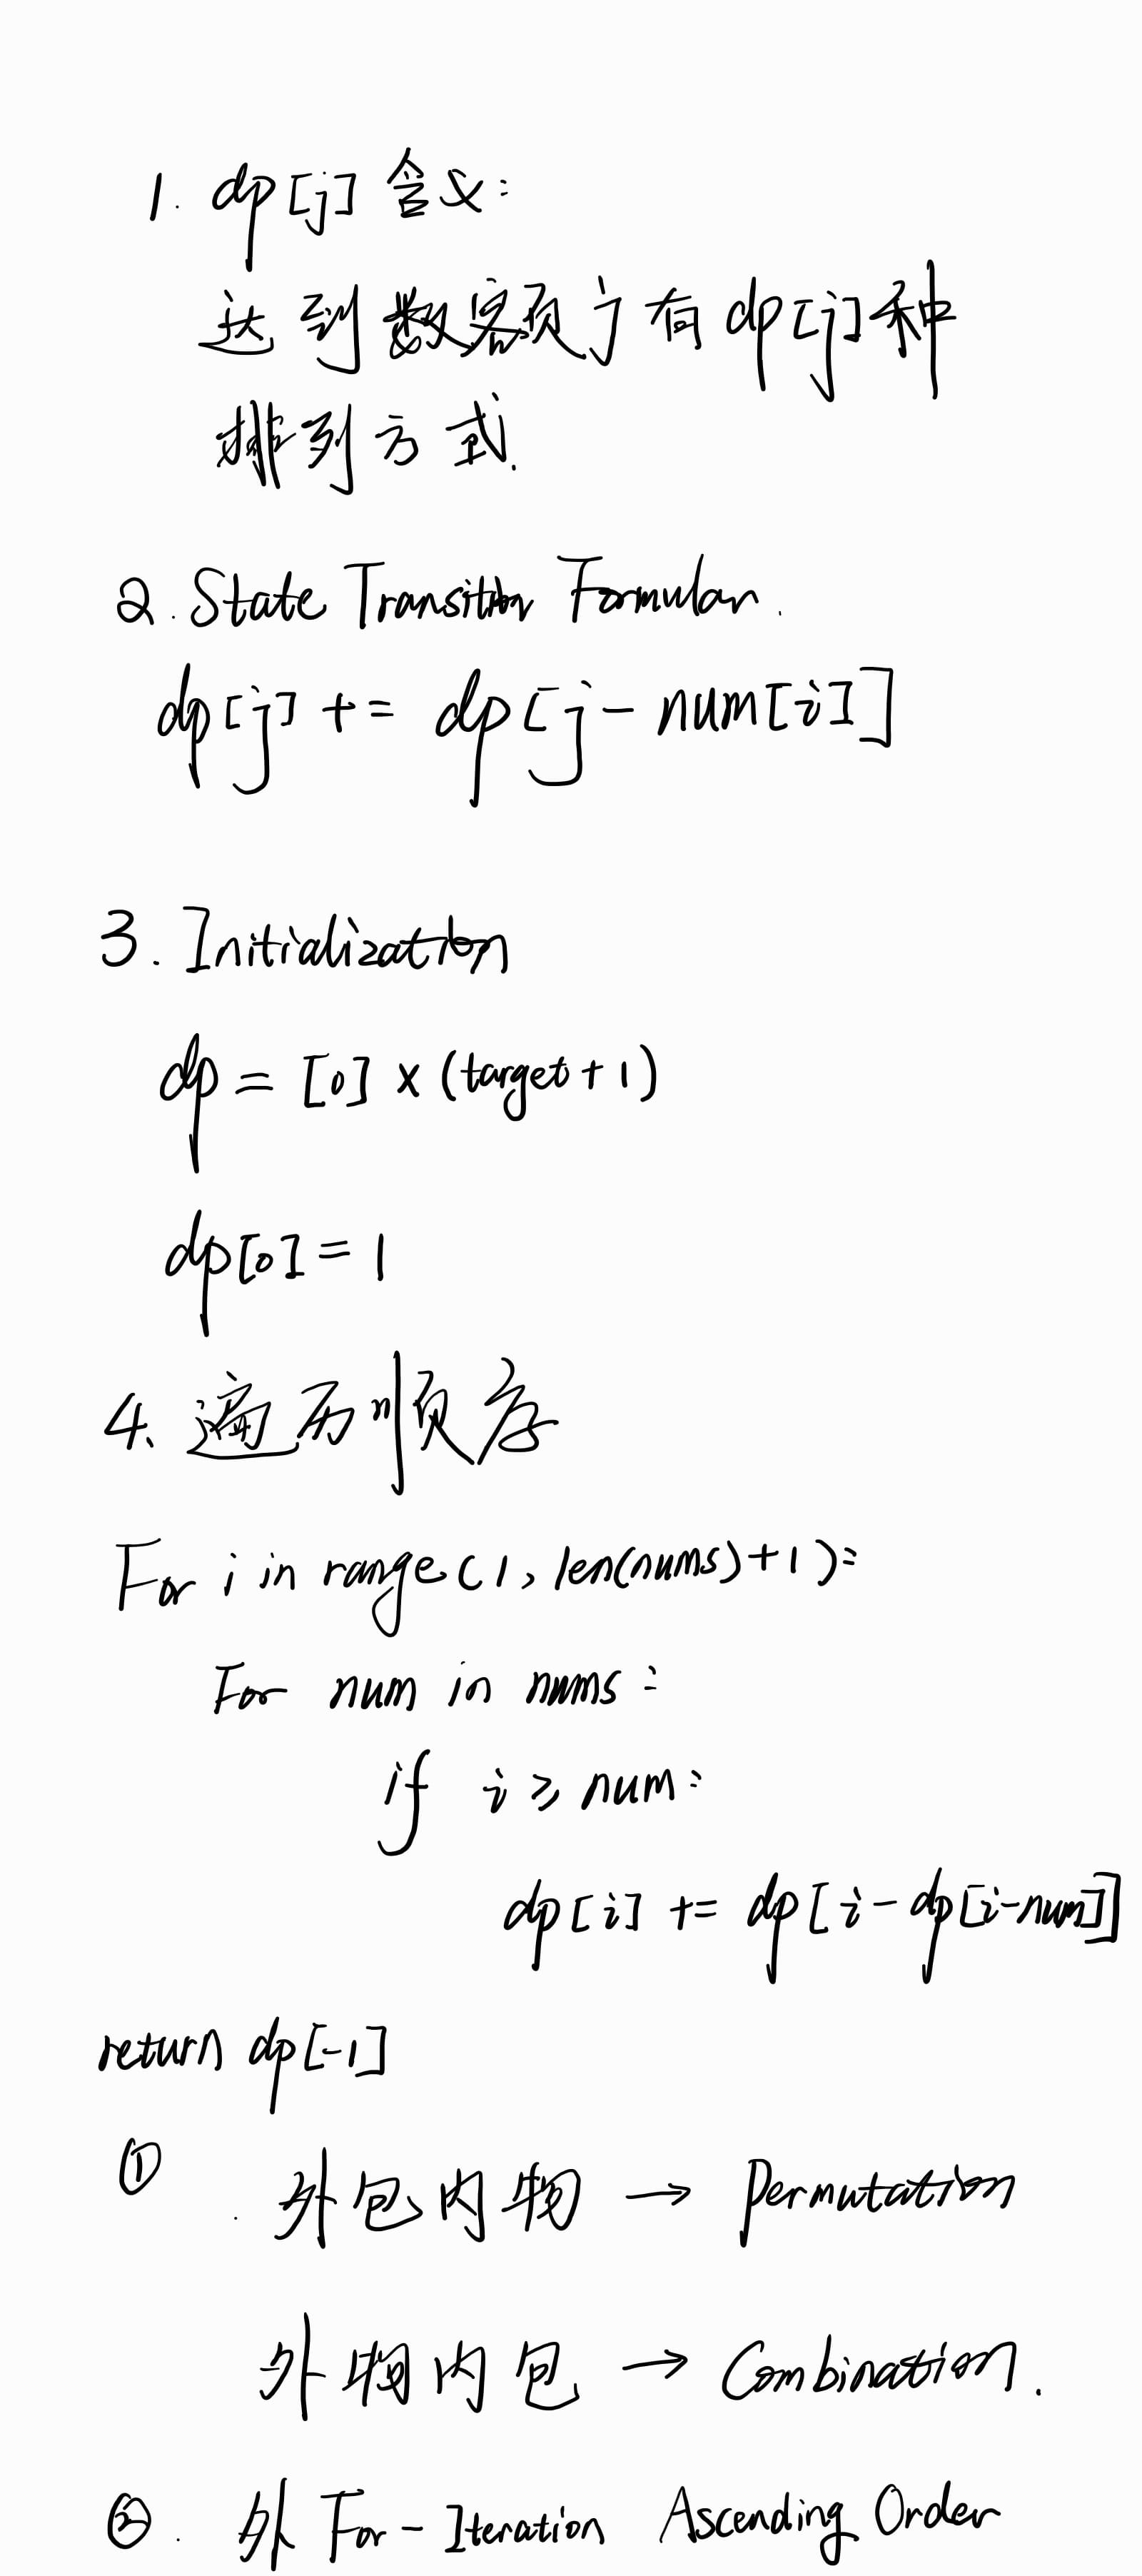 1. dp[j] 含义:
达到数额 j 有 dp[j]种
排列方式.
2. State Transition Formular.
dp[j] += dp[j - num[i]]
3. Initialization
dp = [0] × (target + 1)
dp[0] = 1
4. 遍历顺序
For i in range(1, len(nums)+1):
For num in nums:
if i ≥ num:
dp[i] += dp[i - dp[i-num]]
return dp[-1]
① 外包内物 → Permutation
外物内包 → Combination.
②. 外 For - Iteration Ascending Order